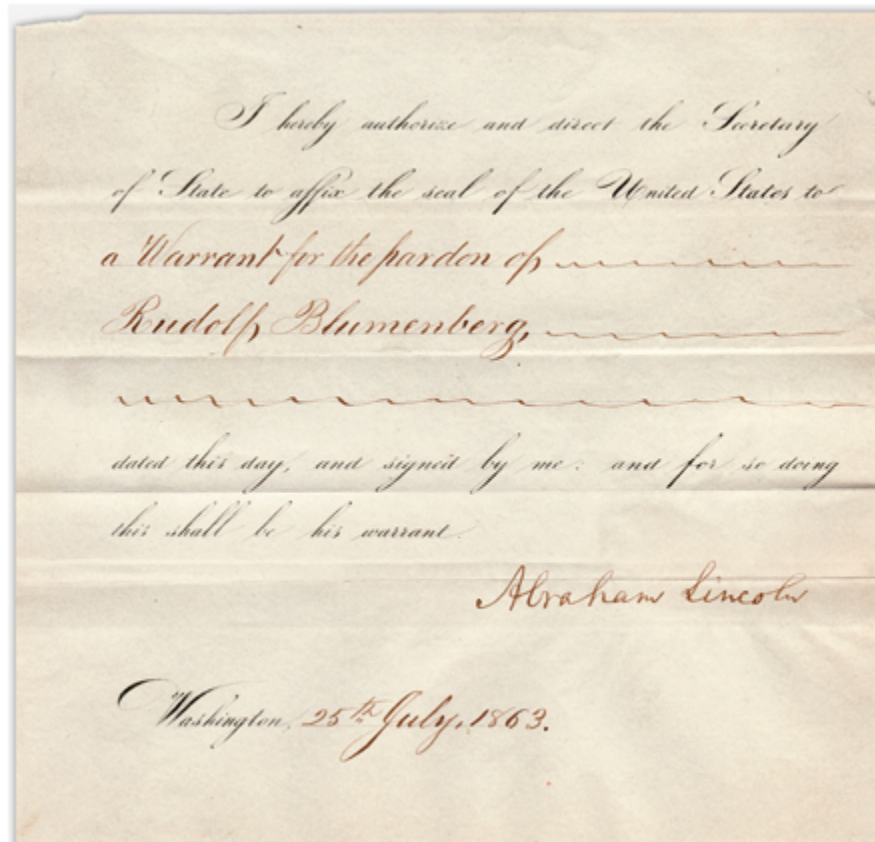 I hereby authorize and direct the Secretary
of State to affix the seal of the United States to
a Warrant for the pardon of
Rudolf Blumenberg,
dated this day, and signed by me: and for so doing
this shall be his warrant.
Abraham Lincoln
Washington, 25th July, 1863.